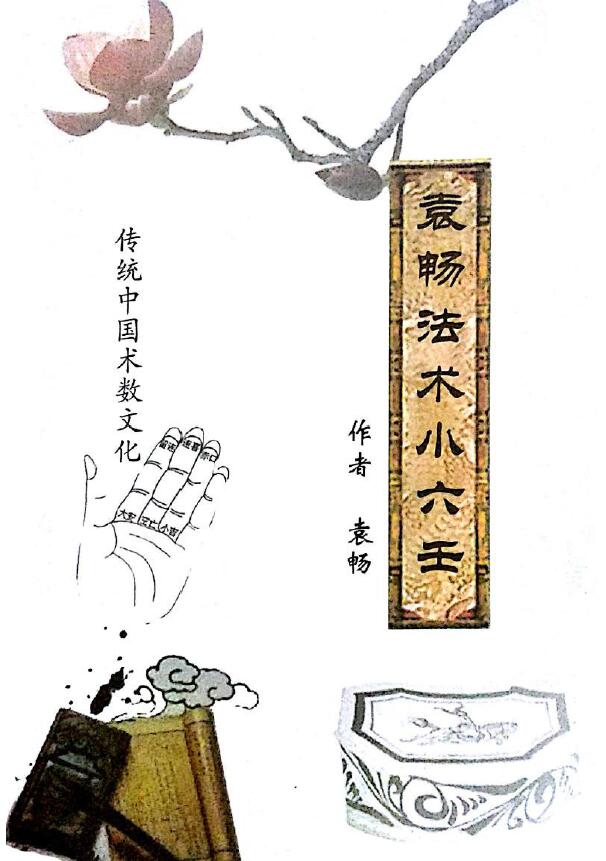 袁畅法术小六壬
作者 袁畅
传统中国术数文化
留连 速喜 赤口
大安 空亡 小吉